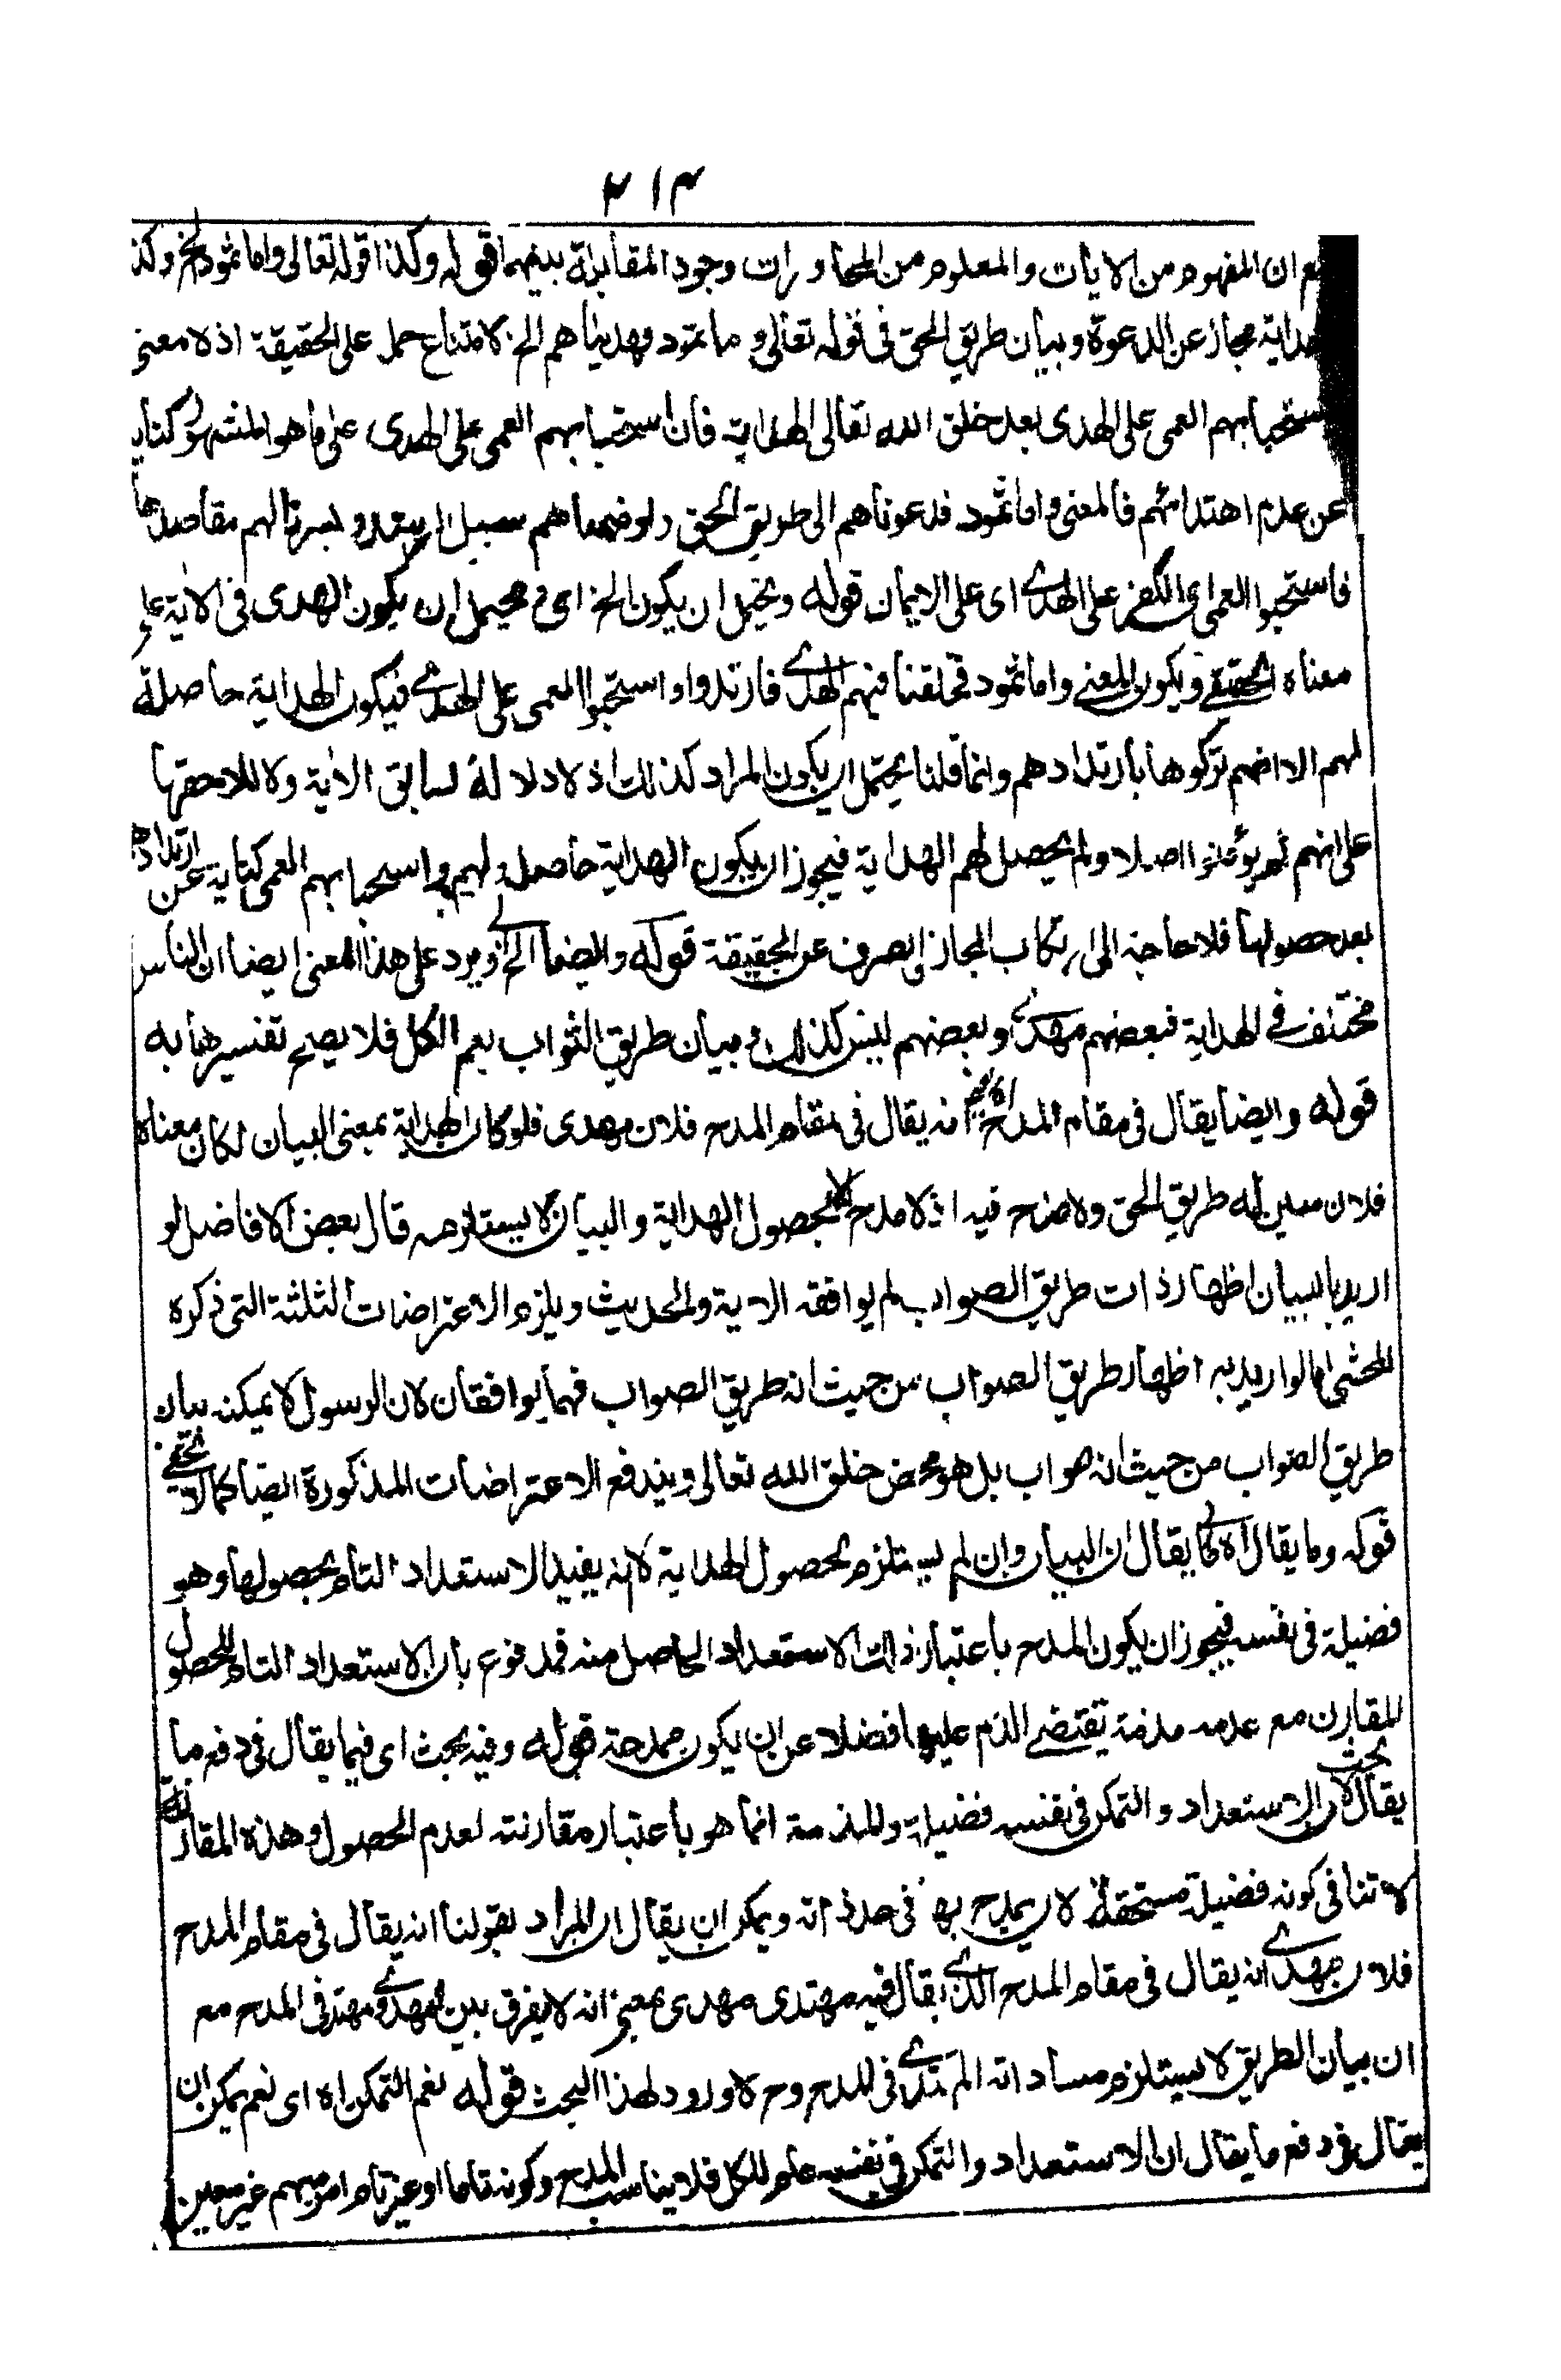 ٣١٤
ان المفهوم من الايات والمعلوم من المحاورات وجود المقابلة بينهما قوله وكذا قوله تعالى واما ثمود الخ وكذ
مجاز عن الدعوة وبيان طريق الحق في قوله تعالى و ما ثمود فهديناهم الخ لامتناع حمله على الحقيقة اذ لا معنى
العمى على الهدى بعد خلق الله تعالى الهداية فان استحبابهم العمى على الهدى على ما هو المشهور كناية
عن عدم اهتدائهم فالمعنى واما ثمود فدعوناهم الى طريق الحق واوضحناهم سبيل الرشد ويسرنا لهم مقاصدها
فاستحبوا العمى اى الكفر على الهدى اى على الايمان قوله ويحتمل ان يكون الخ اى يحتمل ان يكون الهدى فى الاية على
معناه الحقيقى ويكون المعنى واما ثمود فخلقنا فيهم الهدى فارتدوا و استحبوا العمى على الهدى فيكون الهداية حاصلة
لهم الا انهم تركوها بارتدادهم وانما قلنا يحتمل ان يكون المراد كذلك اذ لا دلالة لسابق الاية ولا للاحقها
على انهم لم يؤمنوا اصلا ولم يحصل لهم الهداية فيجوز ان يكون الهداية حاصلة لهم واستحبابهم العمى كناية عن ارتدادهم
بعد حصولها فلا حاجة الى ارتكاب المجاز الصرف عن الحقيقة قوله وايضا الخ ويرد على هذا المعنى ايضا ان الناس
مختلف فى الهداية فبعضهم مهدى وبعضهم ليس كذلك وبيان طريق الثواب يعم الكل فلا يصح تفسيرها به
قوله وايضا يقال فى مقام المدح انه يقال فى مقام المدح فلان مهدى فلو كان الهداية بمعنى البيان لكان معناه
فلان مبين له طريق الحق ولا مدح فيه اذ لا مدح الا بحصول الهداية والبيان لا يستلزمه قال بعض الافاضل لو
اريد بالبيان اظهار ذات طريق الصواب لم يوافقه الاية والحديث ويلزم الاعتراضات الثلثة التى ذكره
المحشى اما لو اريد به اظهار طريق الصواب من حيث انه طريق الصواب فهما يوافقان لان الرسول لا يمكنه بيان
طريق الصواب من حيث انه صواب بل هو محض خلق الله تعالى ويندفع الاعتراضات المذكورة ايضا كما لا يخفى
قوله وما يقال اه كما يقال ان البيان وان لم يستلزم لحصول الهداية لانه يفيد الاستعداد التام بحصولها وهو
فضيلة فى نفسه فيجوز ان يكون المدح باعتبار ذلك الاستعداد الحاصل منه فمدفوع بان الاستعداد التام للحصول
المقارن مع عدمه مذمة تقتضى الذم عليها فضلا عن ان يكون ممدحة قوله وفيه بحث اى فيما يقال فى دفع ما
يقال بحث لان الاستعداد والتمكن فى نفسه فضيلة والمذمة انما هو باعتبار مقارنته لعدم الحصول وهذه المقارنة
لا تنافى كونه فضيلة مستحقة لان يمدح بها فى حد ذاته ويمكن ان يقال ان المراد بقولنا انه يقال فى مقام المدح
فلان مهدى انه يقال فى مقام المدح الذى يقال فيه مهتدى مهدى بمعنى انه لا يفرق بين مهدى ومهتد فى المدح مع
ان بيان الطريق لا يستلزم مساواته المهتدى فى المدح وح لا ورود لهذا البحث قوله نعم التمكن اه اى نعم يمكن ان
يقال فى دفع ما يقال ان الاستعداد والتمكن فى نفسه عام للكل فلا يناسب المدح وكونه تاما او غير تام امر مبهم غير معين